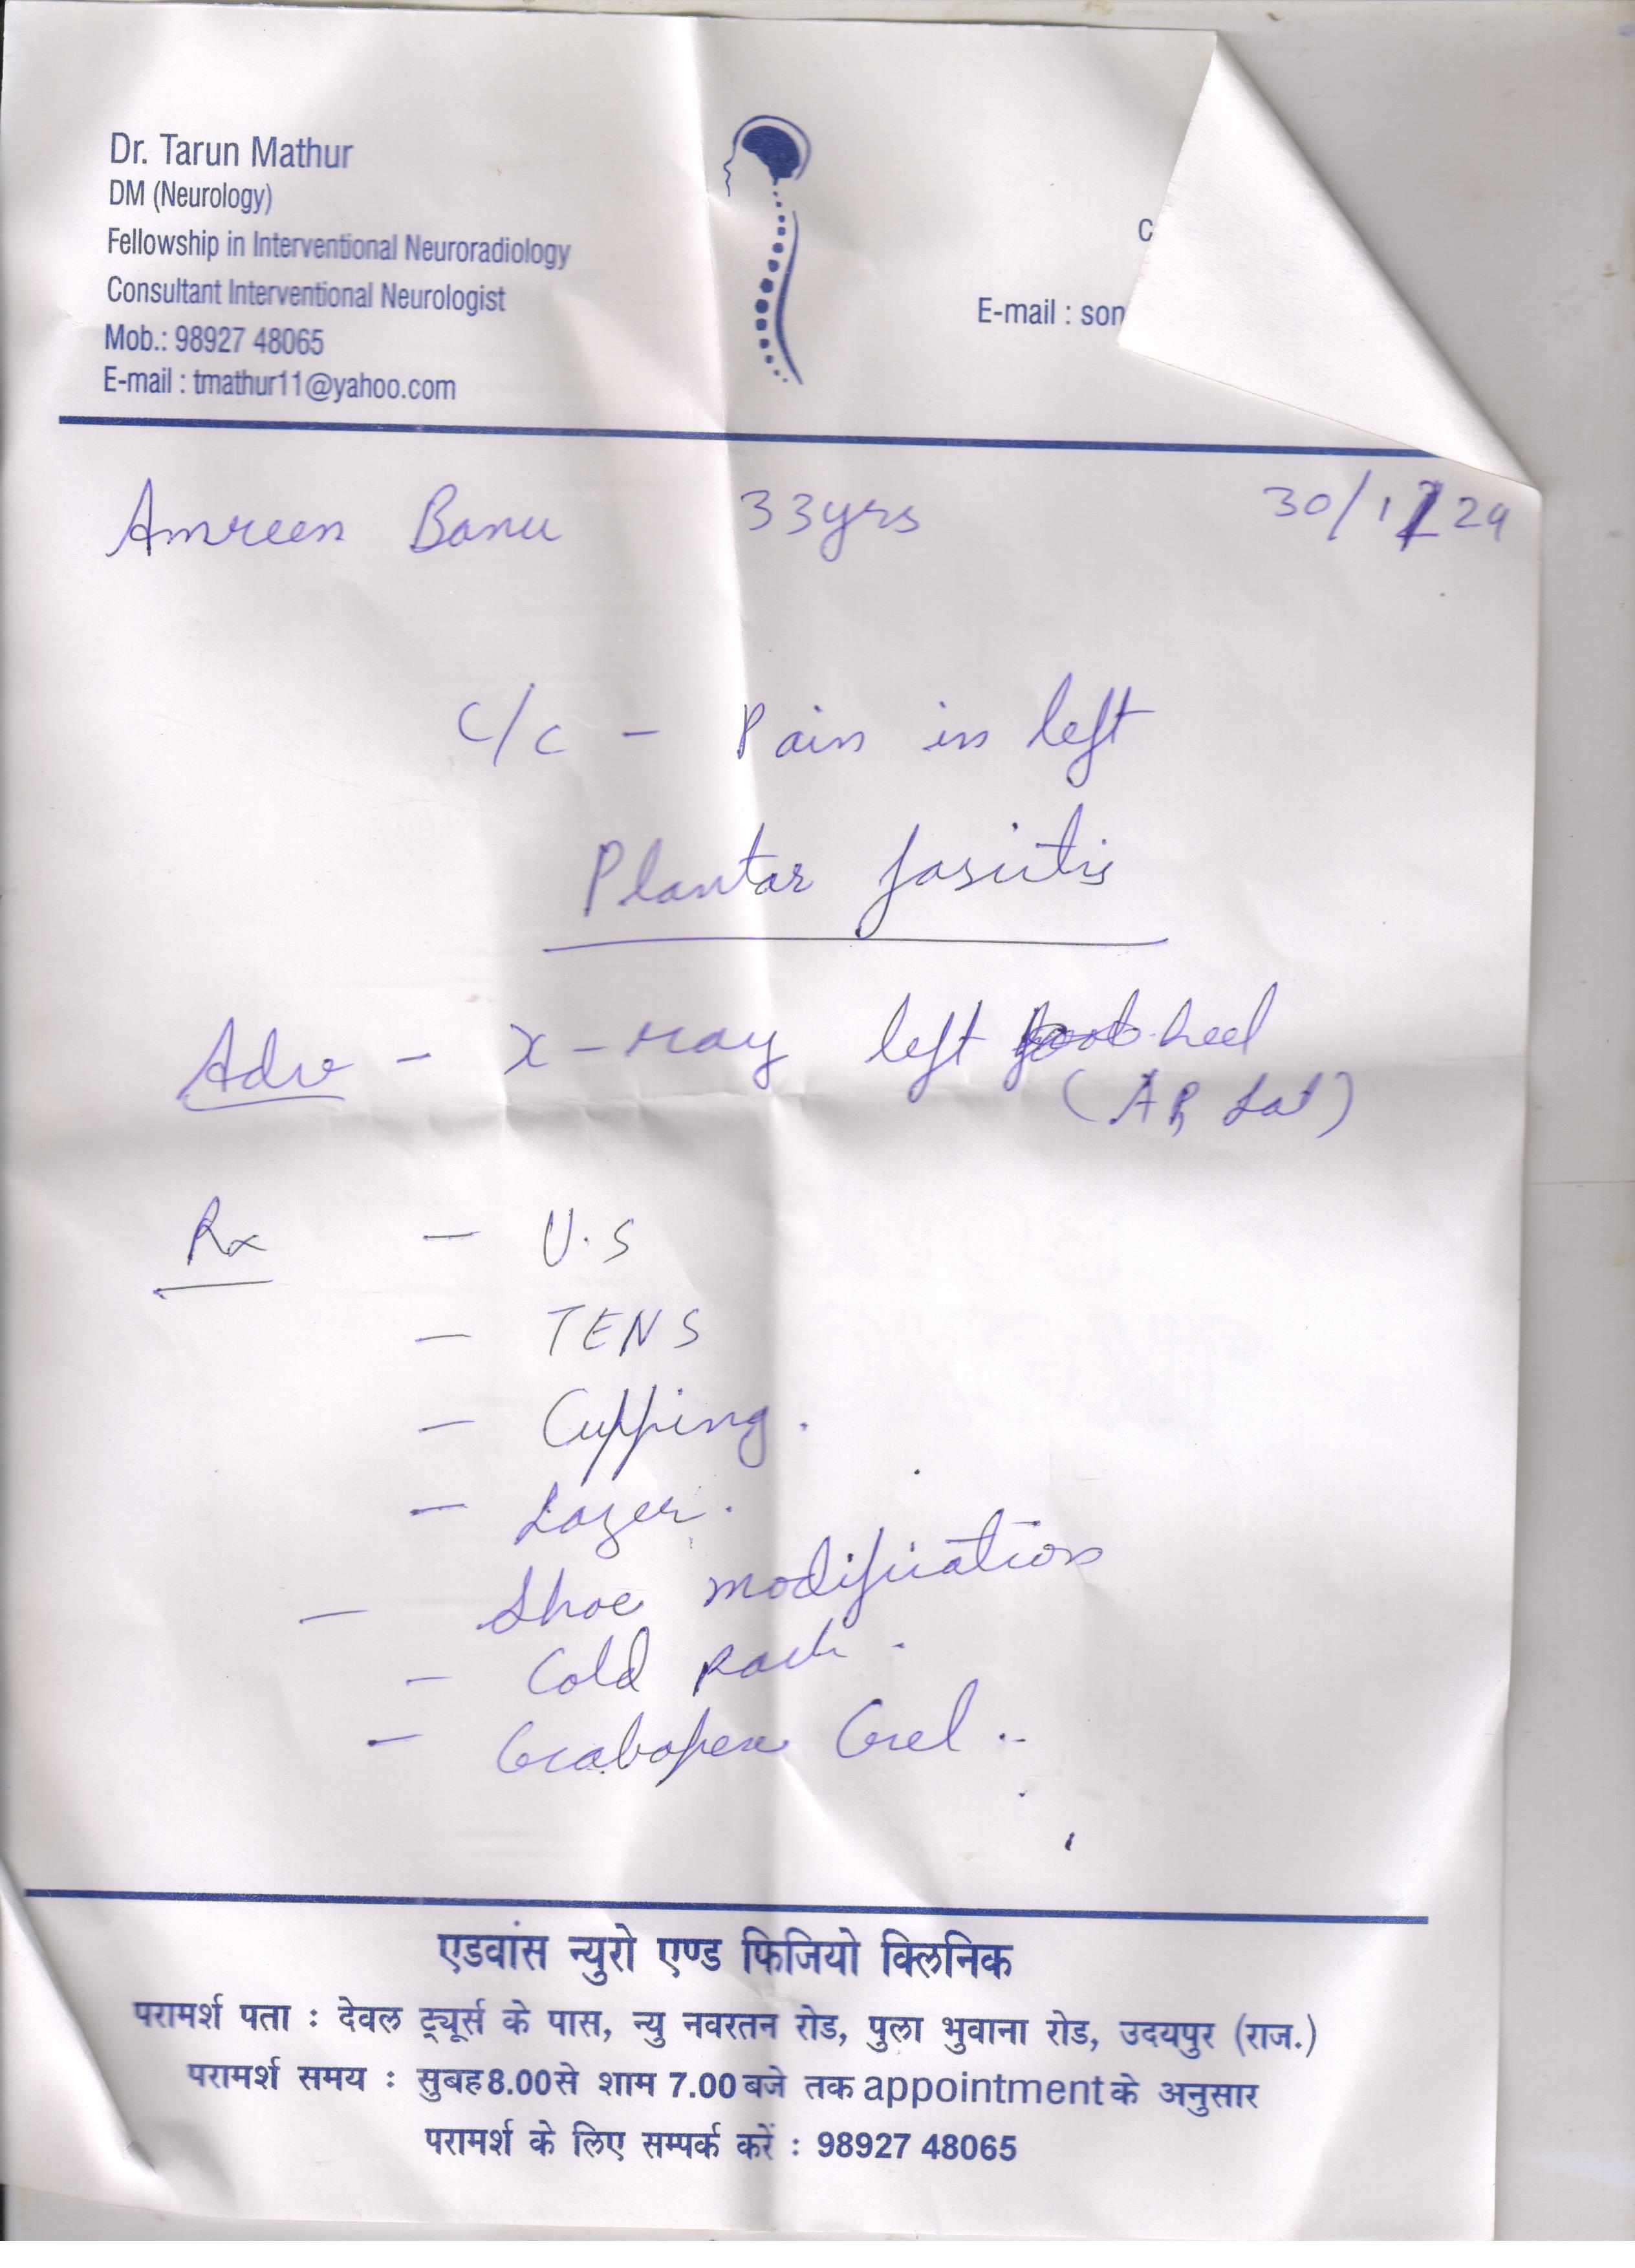 Dr. Tarun Mathur
DM (Neurology)
Fellowship in Interventional Neuroradiology
Consultant Interventional Neurologist
Mob.: 98927 48065
E-mail : tmathur11@yahoo.com
C
E-mail : son
Amreen Banu 33yrs 30/12/24
C/c - Pain in left
Plantar fasitis
Adv - X-ray left heel
(AP, Lat)
Rx - U.S
- TENS
- Cupping.
- Lazer.
- Shoe modification
- Cold pack.
- Gabapen Gel..
एडवांस न्युरो एण्ड फिजियो क्लिनिक
परामर्श पता : देवल ट्यूर्स के पास, न्यु नवरतन रोड, पुला भुवाना रोड, उदयपुर (राज.)
परामर्श समय : सुबह 8.00 से शाम 7.00 बजे तक appointment के अनुसार
परामर्श के लिए सम्पर्क करें : 98927 48065